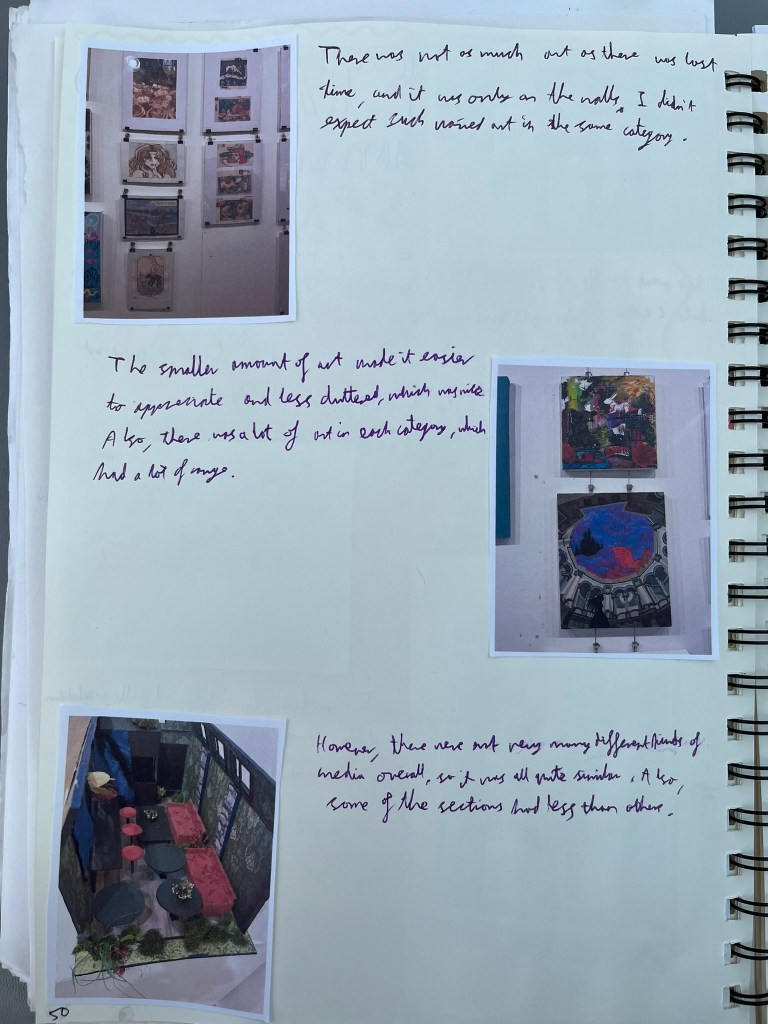 There was not as much art as there was last
time, and it was only on the walls. I didn't
expect such varied art in the same category.
The smaller amount of art made it easier
to appreciate and less cluttered, which was nice
Also, there was a lot of art in each category, which
had a lot of range.
However, there were not very many different kinds of
media overall, so it was all quite similar. Also,
some of the sections had less than others.
50